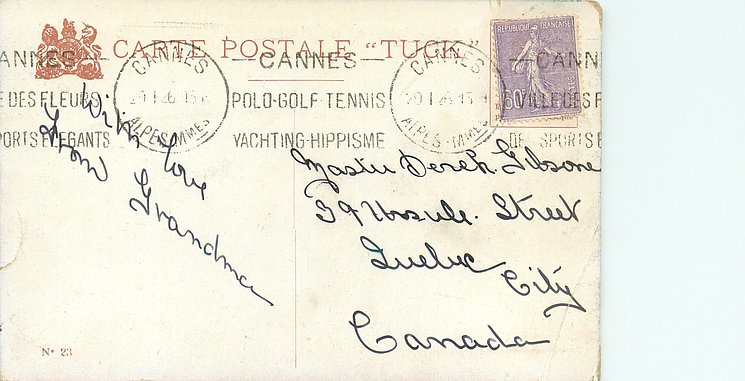 CARTE POSTALE "TUCK"
REPUBLIQUE FRANÇAISE
50
ANNES — CANNES — CANN
E DES FLEURS POLO-GOLF-TENNIS VILLE DES F
PORTS ELEGANTS YACHTING-HIPPISME DE SPORTS E
CANNES
29 I 26
ALPES-MMES
CANNES
29 I 26
ALPES-MMES
With love
from
Grandma
Master Derek Gibsone
39 Ursule Street
Quebec
City
Canada
N° 23